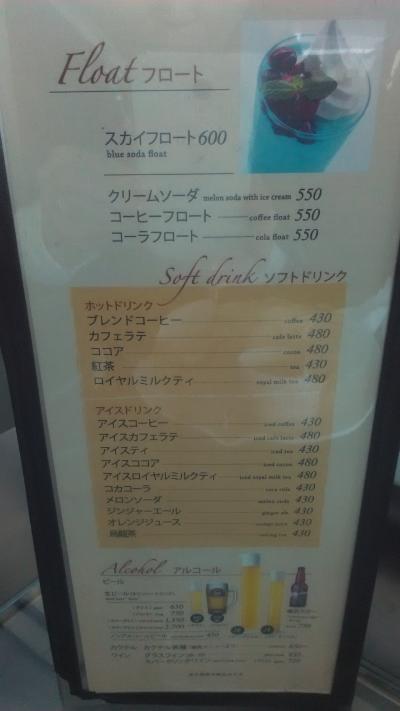 Float フロート
スカイフロート 600
blue soda float
クリームソーダ melon soda with ice cream 550
コーヒーフロート coffee float 550
コーラフロート cola float 550
Soft drink ソフトドリンク
ホットドリンク
ブレンドコーヒー coffee 430
カフェラテ cafe latte 480
ココア cocoa 480
紅茶 tea 430
ロイヤルミルクティ royal milk tea 480
アイスドリンク
アイスコーヒー iced coffee 430
アイスカフェラテ iced cafe latte 480
アイスティ iced tea 430
アイスココア iced cocoa 480
アイスロイヤルミルクティ iced royal milk tea 480
コカコーラ coca cola 430
メロンソーダ melon soda 430
ジンジャーエール ginger ale 430
オレンジジュース orange juice 430
烏龍茶 oolong tea 430
Alcohol アルコール
ビール
生ビール
630
750
1,350
2,500
ノンアルコールビール 450
750
カクテル カクテル各種
ワイン グラスワイン